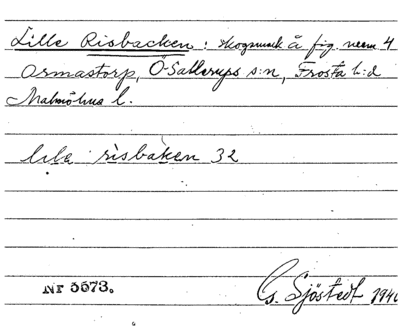 Lille Risbacken: skogsmark å fig. num 4
Ormastorp, Ö-Sallerups s:n, Frosta h:d
Malmöhus l.
lila risbaken 32
Nr 5673.
G. Sjöstedt 1940